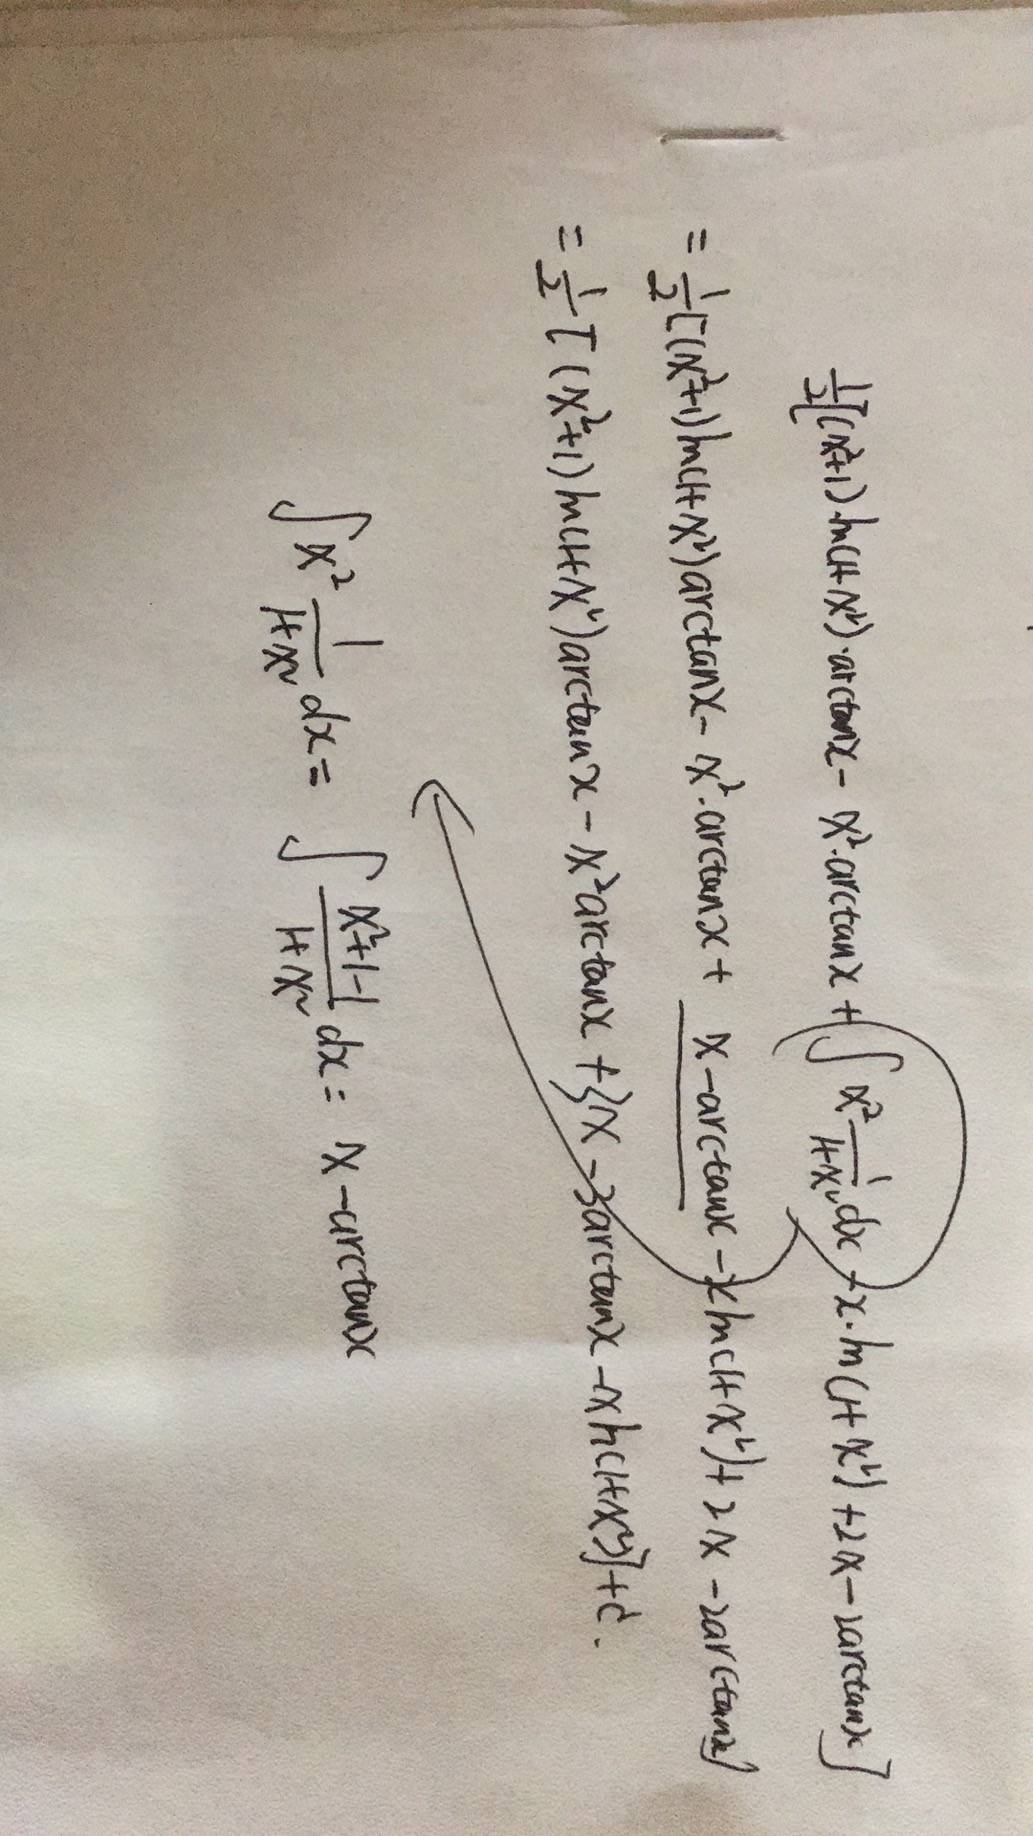 ½[(x²+1)·ln(1+x²)·arctanx − x²·arctanx + ∫x² 1/(1+x²) dx − x·ln(1+x²) + 2x − 2arctanx]
= ½[(x²+1)ln(1+x²)arctanx − x²·arctanx + x − arctanx − xln(1+x²) + 2x − 2arctanx]
= ½[(x²+1)ln(1+x²)arctanx − x²arctanx + 3x − 3arctanx − xln(1+x²)] + C.
∫x² 1/(1+x²) dx = ∫(x²+1−1)/(1+x²) dx = x − arctanx